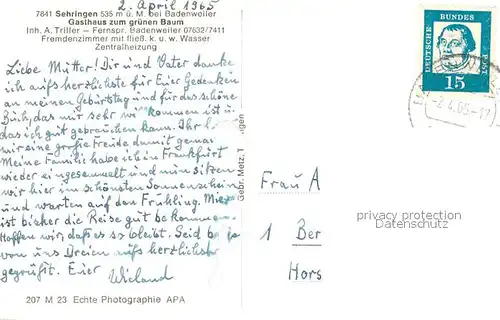 2. April 1965
7841 Sehringen 535 m ü. M. bei Badenweiler
Gasthaus zum grünen Baum
Inh. A. Triller – Fernspr. Badenweiler 07632/7411
Fremdenzimmer mit fließ. k. u. w. Wasser
Zentralheizung
Liebe Mutter! Dir und Vater danke
ich aufs herzlichste für Euer Gedenken
an meinen Geburtstag und für das schöne
Buch, das mir sehr willkommen ist u.
das ich gut gebrauchen kann. Ihr
mir eine große Freude damit gemacht
Meine Familie habe ich in Frankfurt
wieder eingesammelt und nun sitzen
wir hier im schönsten Sonnenschein
und warten auf den Frühling. Mir
ist bisher die Reise gut bekommen.
Hoffen wir, daß es so bleibt. Seid
von uns Dreien aufs herzlichste
gegrüßt. Euer
Wieland
207 M 23 Echte Photographie APA
Gebr. Metz, T
ingen
DEUTSCHE BUNDESPOST
15
-2.4.65-17
Frau A
privacy protection
Datenschutz
1 Ber
Hors